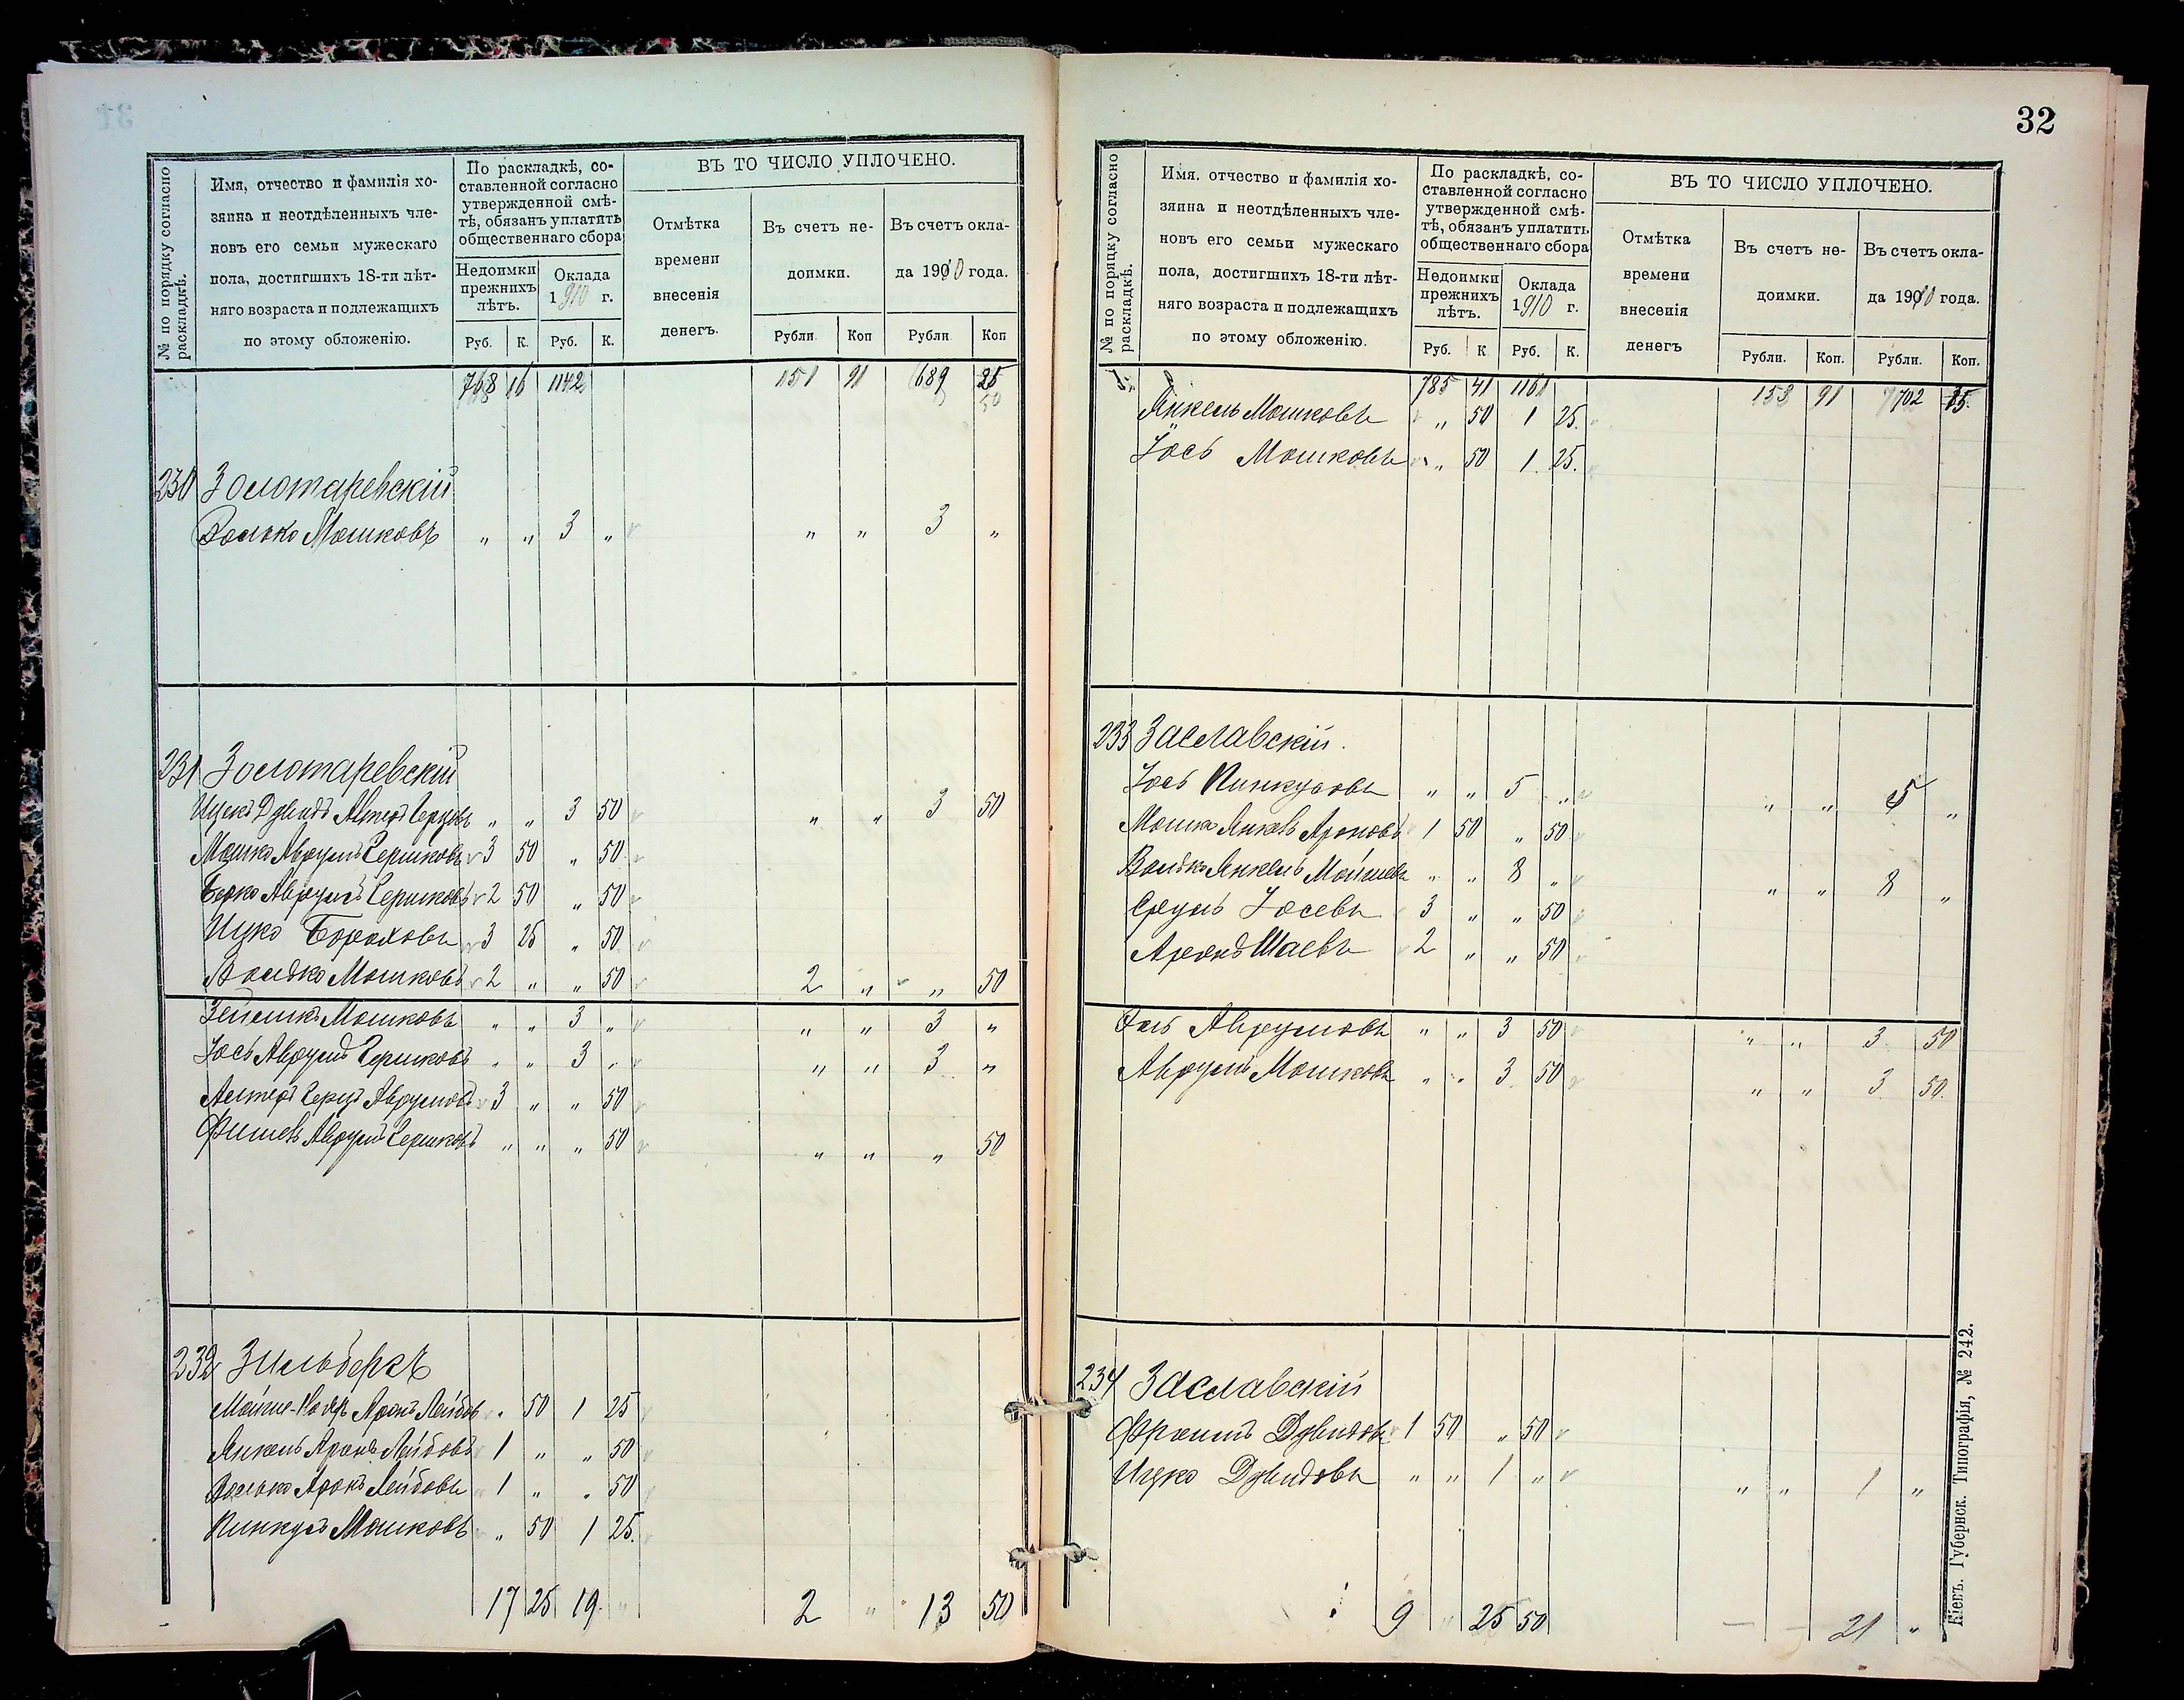 № по порядку согласно раскладкѣ.
Имя, отчество и фамилія хо-
зяина и неотдѣленныхъ чле-
новъ его семьи мужескаго
пола, достигшихъ 18-ти лѣт-
няго возраста и подлежащихъ
по этому обложенію.
По раскладкѣ, со-
ставленной согласно
утвержденной смѣ-
тѣ, обязанъ уплатить
общественнаго сбора
Недоимки
прежнихъ
лѣтъ.
Оклада
1910 г.
Руб. К. Руб. К.
ВЪ ТО ЧИСЛО УПЛОЧЕНО.
Отмѣтка
времени
внесенія
денегъ.
Въ счетъ не-
доимки.
Въ счетъ окла-
да 1910 года.
Рубли Коп Рубли Коп
768 16 1142 151 91 689 25
50
230 Золотаревскій
Волько Мошковъ " " 3 " " " 3 "
231 Золотаревскій
Ицекъ Дувидъ Алтеръ Герцовъ " " 3 50 " " 3 50
Мошко Аврумъ Гершковъ 3 50 " 50
Берко Аврумъ Гершковъ 2 50 " 50
Ицко Бороховъ 3 25 " 50
Волько Мошковъ 2 " " 50 2 " " 50
Зейликъ Мошковъ " " 3 " " " 3 "
Іось Аврумъ Гершковъ " " 3 " " " 3 "
Алтеръ Герцъ Аврумовъ 3 " " 50
Фишель Аврумъ Гершковъ " " " 50 " " " 50
232 Зильбергъ
Мойше- Аронъ Лейбов " 50 1 25
Янкель Аронъ Лейбовъ 1 " " 50
Волько Аронъ Лейбовъ 1 " " 50
Пинкусъ Мошковъ " 50 1 25.
17 25 19 " 2 " 13 50
32
№ по порядку согласно раскладкѣ.
Имя. отчество и фамилія хо-
зяина и неотдѣленныхъ чле-
новъ его семьи мужескаго
пола, достигшихъ 18-ти лѣт-
няго возраста и подлежащихъ
по этому обложенію.
По раскладкѣ, со-
ставленной согласно
утвержденной смѣ-
тѣ, обязанъ уплатить
общественнаго сбора
Недоимки
прежнихъ
лѣтъ.
Оклада
1910 г.
Руб. К Руб. К.
ВЪ ТО ЧИСЛО УПЛОЧЕНО.
Отмѣтка
времени
внесенія
денегъ
Въ счетъ не-
доимки.
Въ счетъ окла-
да 1910 года.
Рубли. Коп. Рубли. Коп.
785 41 1161 153 91 702
Янкель Мошковъ " 50 1 25.
Іось Мошковъ " 50 1. 25.
233 Заславскій.
Іось Пинкусовъ " " 5 " " " 5 "
Мошко Янкель Ароновъ 1 50 " 50
Волько Янкель Мойшевъ " " 8 " " " 8 "
Срулъ Іосевъ 3 " " 50
Аронъ Шаевъ 2 " " 50
Аврумовъ " " 3 50 " " 3 50
Аврумъ Мошковъ " " 3 50 " " 3 50.
234 Заславскій
Фроимъ Дувидовъ 1 50 " 50
Ицко Дувидовъ " " 1 " " " 1 "
9 " 25 50 — — 21 "
Кіевъ. Губернск. Типографія, № 242.